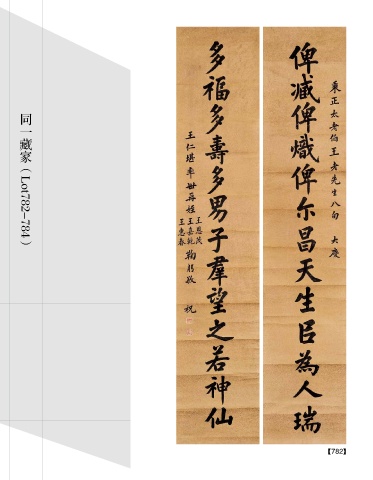 同一藏家（Lot782-784）
秉正太老伯王老先生八旬 大慶
俾臧俾熾俾尔昌天生臣為人瑞
多福多壽多男子羣望之若神仙
王仁堪率世再姪王恩茂
王嘉乾
王惠春
鞠躬敬 祝
【782】